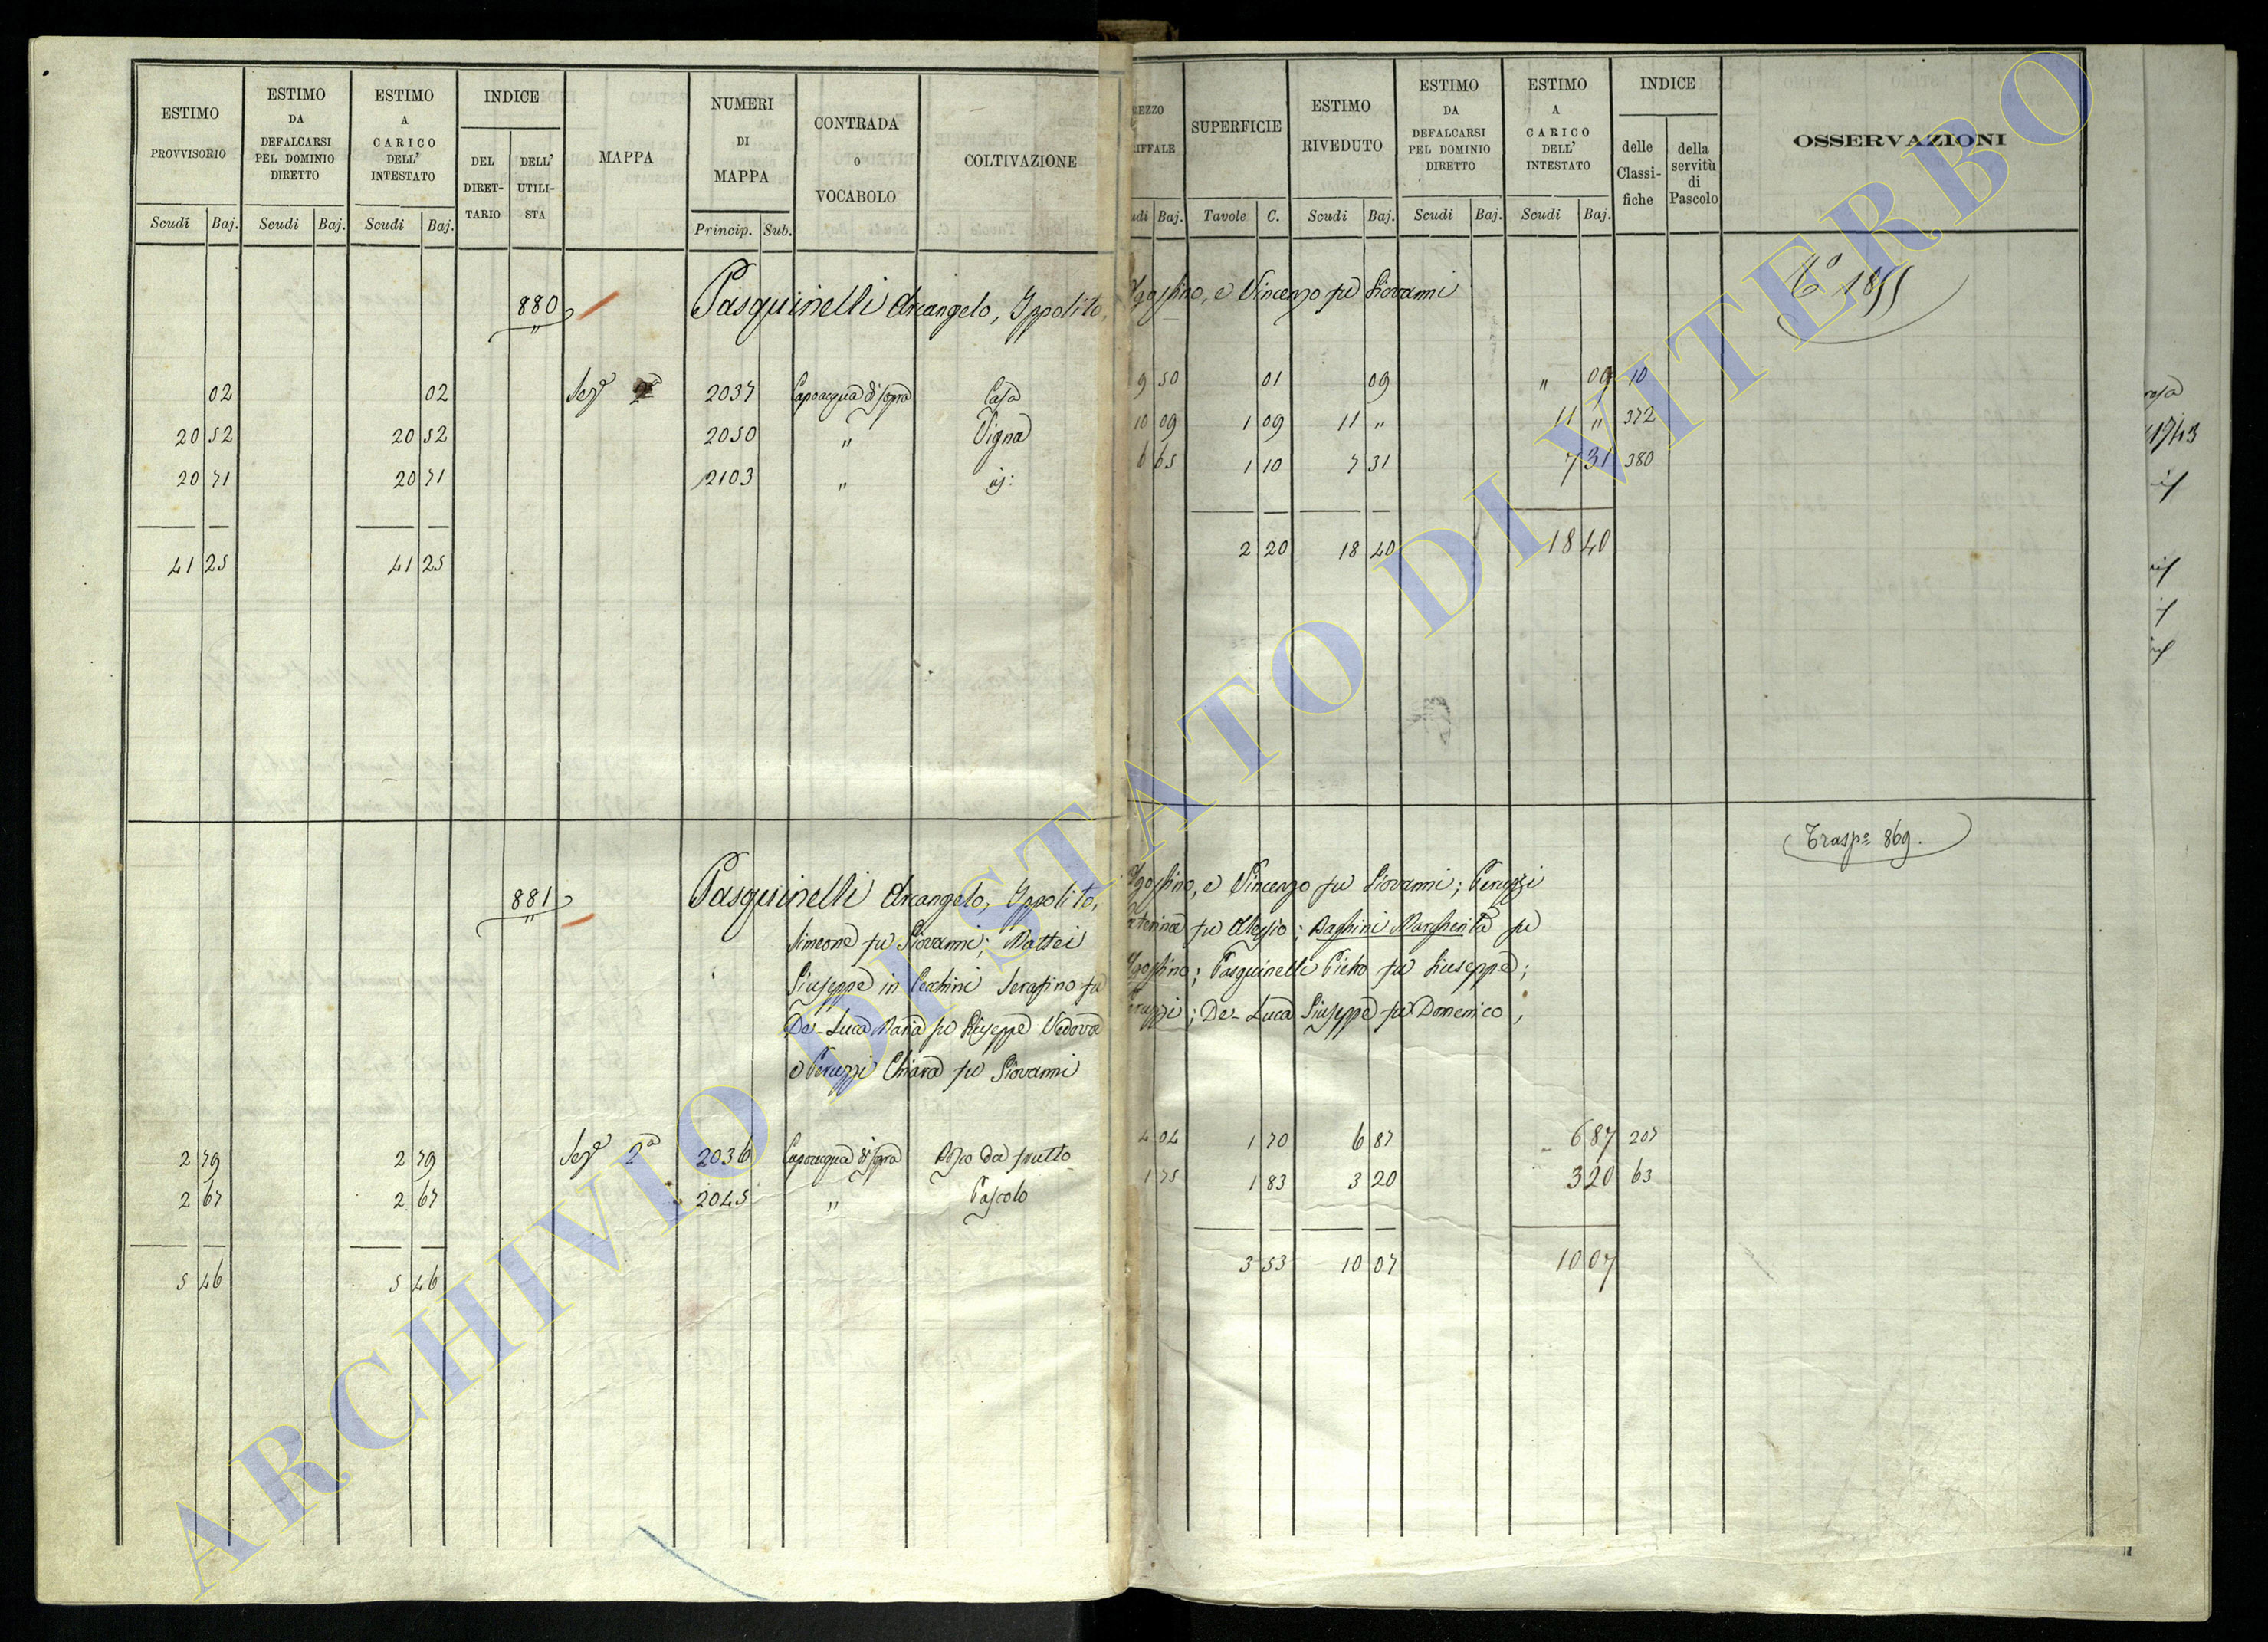 ESTIMO PROVVISORIO
ESTIMO DA DEFALCARSI PEL DOMINIO DIRETTO
ESTIMO A CARICO DELL' INTESTATO
INDICE
DEL DIRET-TARIO
DELL' UTILI-STA
MAPPA
NUMERI DI MAPPA
CONTRADA o VOCABOLO
COLTIVAZIONE
Scudi Baj. Scudi Baj. Scudi Baj. Princip. Sub.
REZZO IFFALE
SUPERFICIE
ESTIMO RIVEDUTO
ESTIMO DA DEFALCARSI PEL DOMINIO DIRETTO
ESTIMO A CARICO DELL' INTESTATO
INDICE
delle Classi-fiche
della servitù di Pascolo
OSSERVAZIONI
udi Baj. Tavole C. Scudi Baj. Scudi Baj. Scudi Baj.
880 Pasquinelli Arcangelo, Ippolito, Agostino, e Vincenzo fu Giovanni
02 02 Sez.e 2a 2037 Capoacqua di sopra Casa 9 50 01 09 " 09 10
20 52 20 52 2050 " Vigna 10 09 1 09 11 " 11 " 372
20 71 20 71 2103 " id: 6 65 1 10 7 31 7 31 380
41 25 41 25 2 20 18 40 18 40
Trasp.e 869.
881 Pasquinelli Arcangelo, Ippolito, Agostino, e Vincenzo fu Giovanni; Peruzzi
Simeone fu Giovanni; Mattei aterina fu Alessio; Baghini Margherita fu
Giuseppe in Cecchini Serafino fu Agostino; Pasquinelli Pietro fu Giuseppe;
De-Luca Maria fu Giuseppe Vedova Peruzzi; De-Luca Giuseppe fu Domenico,
e Peruzzi Chiara fu Giovanni
2 79 2 79 Sez.e 2a 2036 Capoacqua di sopra Bosco da frutto 4 04 1 70 6 87 6 87 207
2 67 2 67 2045 " Pascolo 1 75 1 83 3 20 3 20 63
5 46 5 46 3 53 10 07 10 07
ARCHIVIO DI STATO DI VITERBO